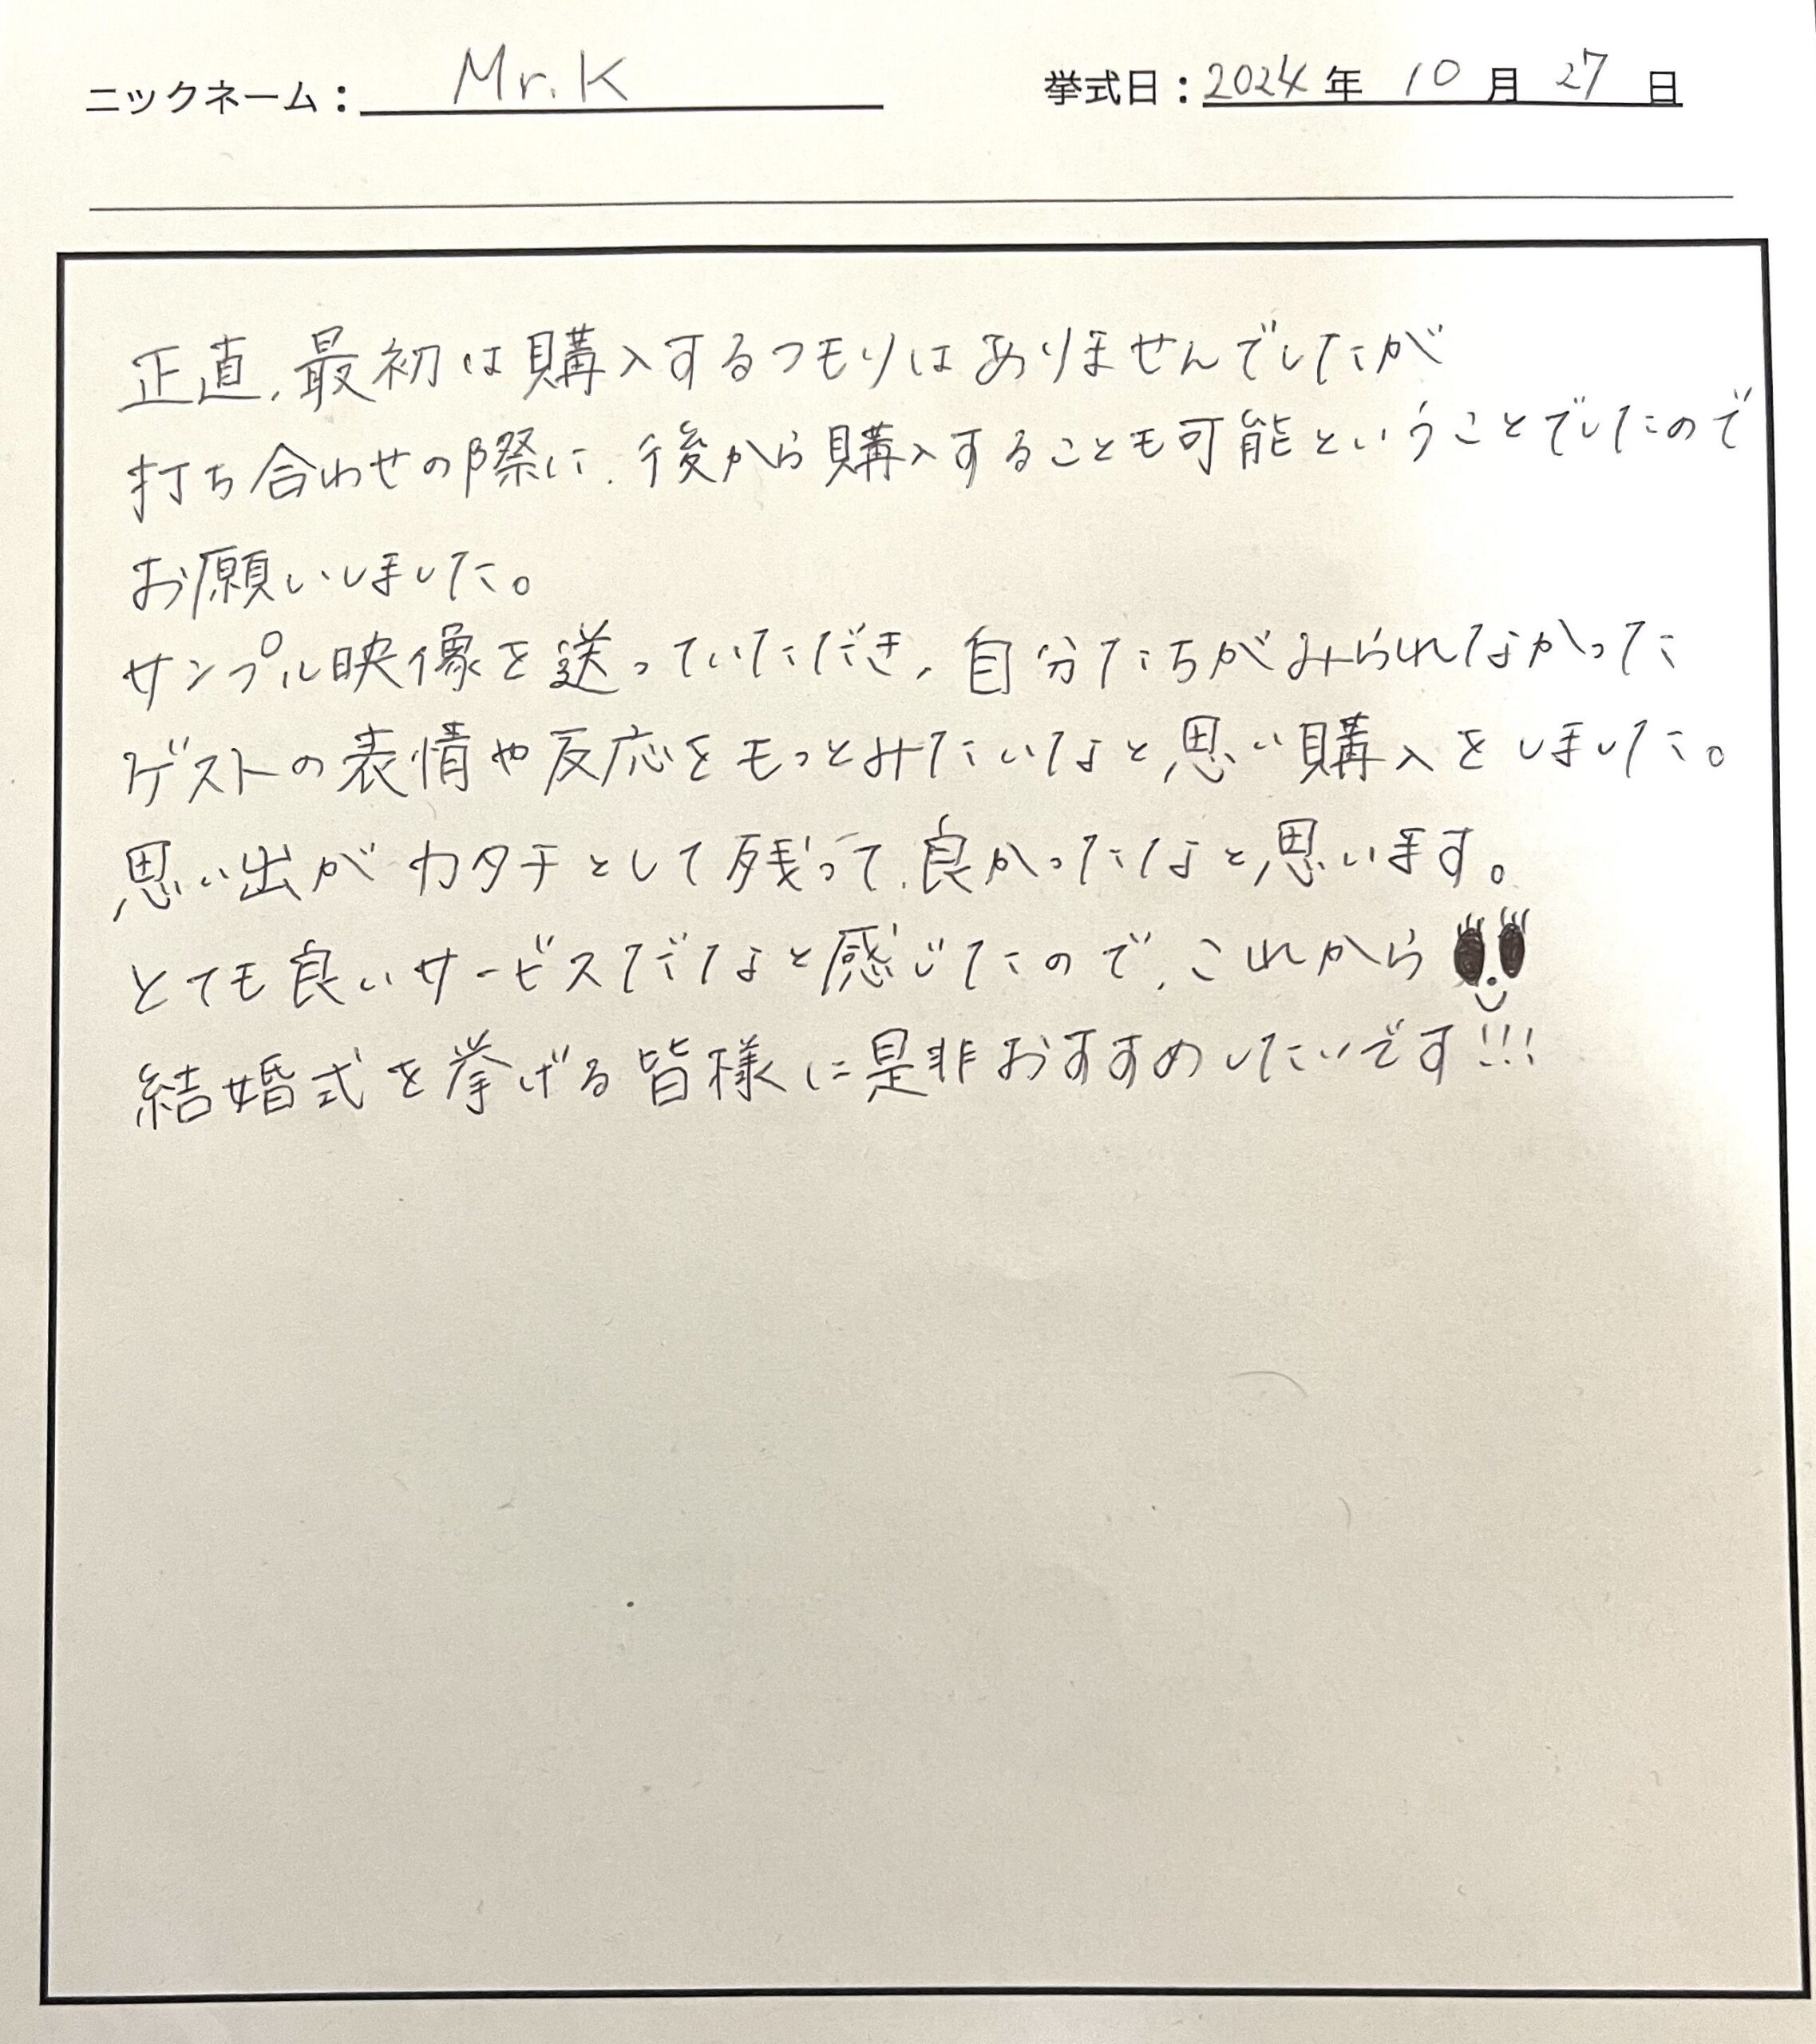 ニックネーム： Mr.K 挙式日：2024年 10月 27日
正直、最初は購入するつもりはありませんでしたが
打ち合わせの際に、後から購入することも可能ということでしたので
お願いしました。
サンプル映像を送っていただき、自分たちがみられなかった
ゲストの表情や反応をもっとみたいなと思い購入をしました。
思い出がカタチとして残って、良かったなと思います。
とても良いサービスだなと感じたので、これから
結婚式を挙げる皆様に是非おすすめしたいです!!!